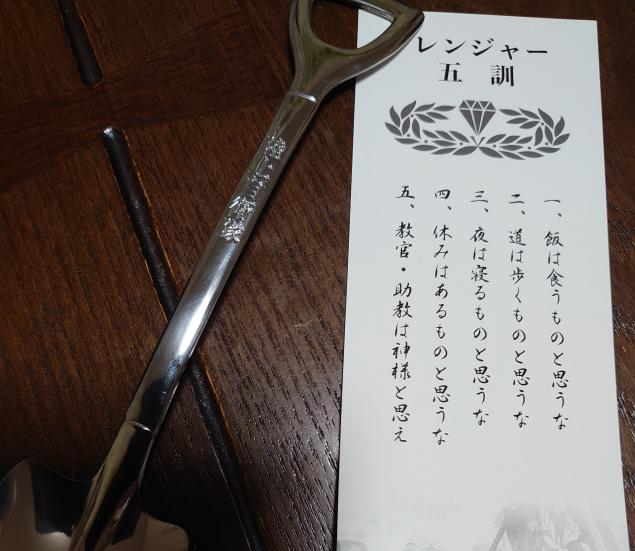 レンジャー
五訓
一、飯は食うものと思うな
二、道は歩くものと思うな
三、夜は寝るものと思うな
四、休みはあるものと思うな
五、教官・助教は神様と思え